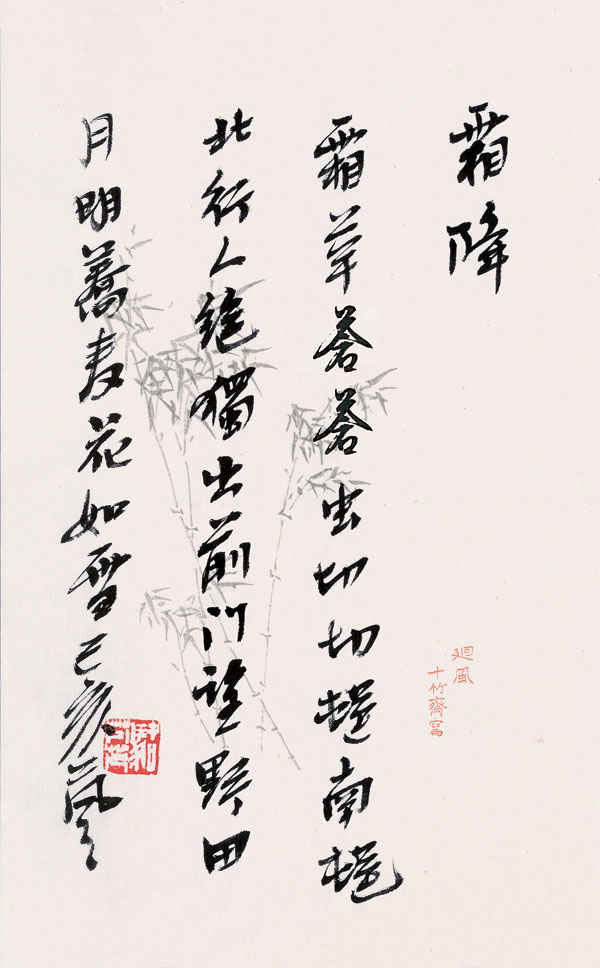 霜降
霜草蒼蒼虫切切村南村
北行人絕獨出前門望野田
月明蕎麦花如雪己亥
廻風
十竹齋寫